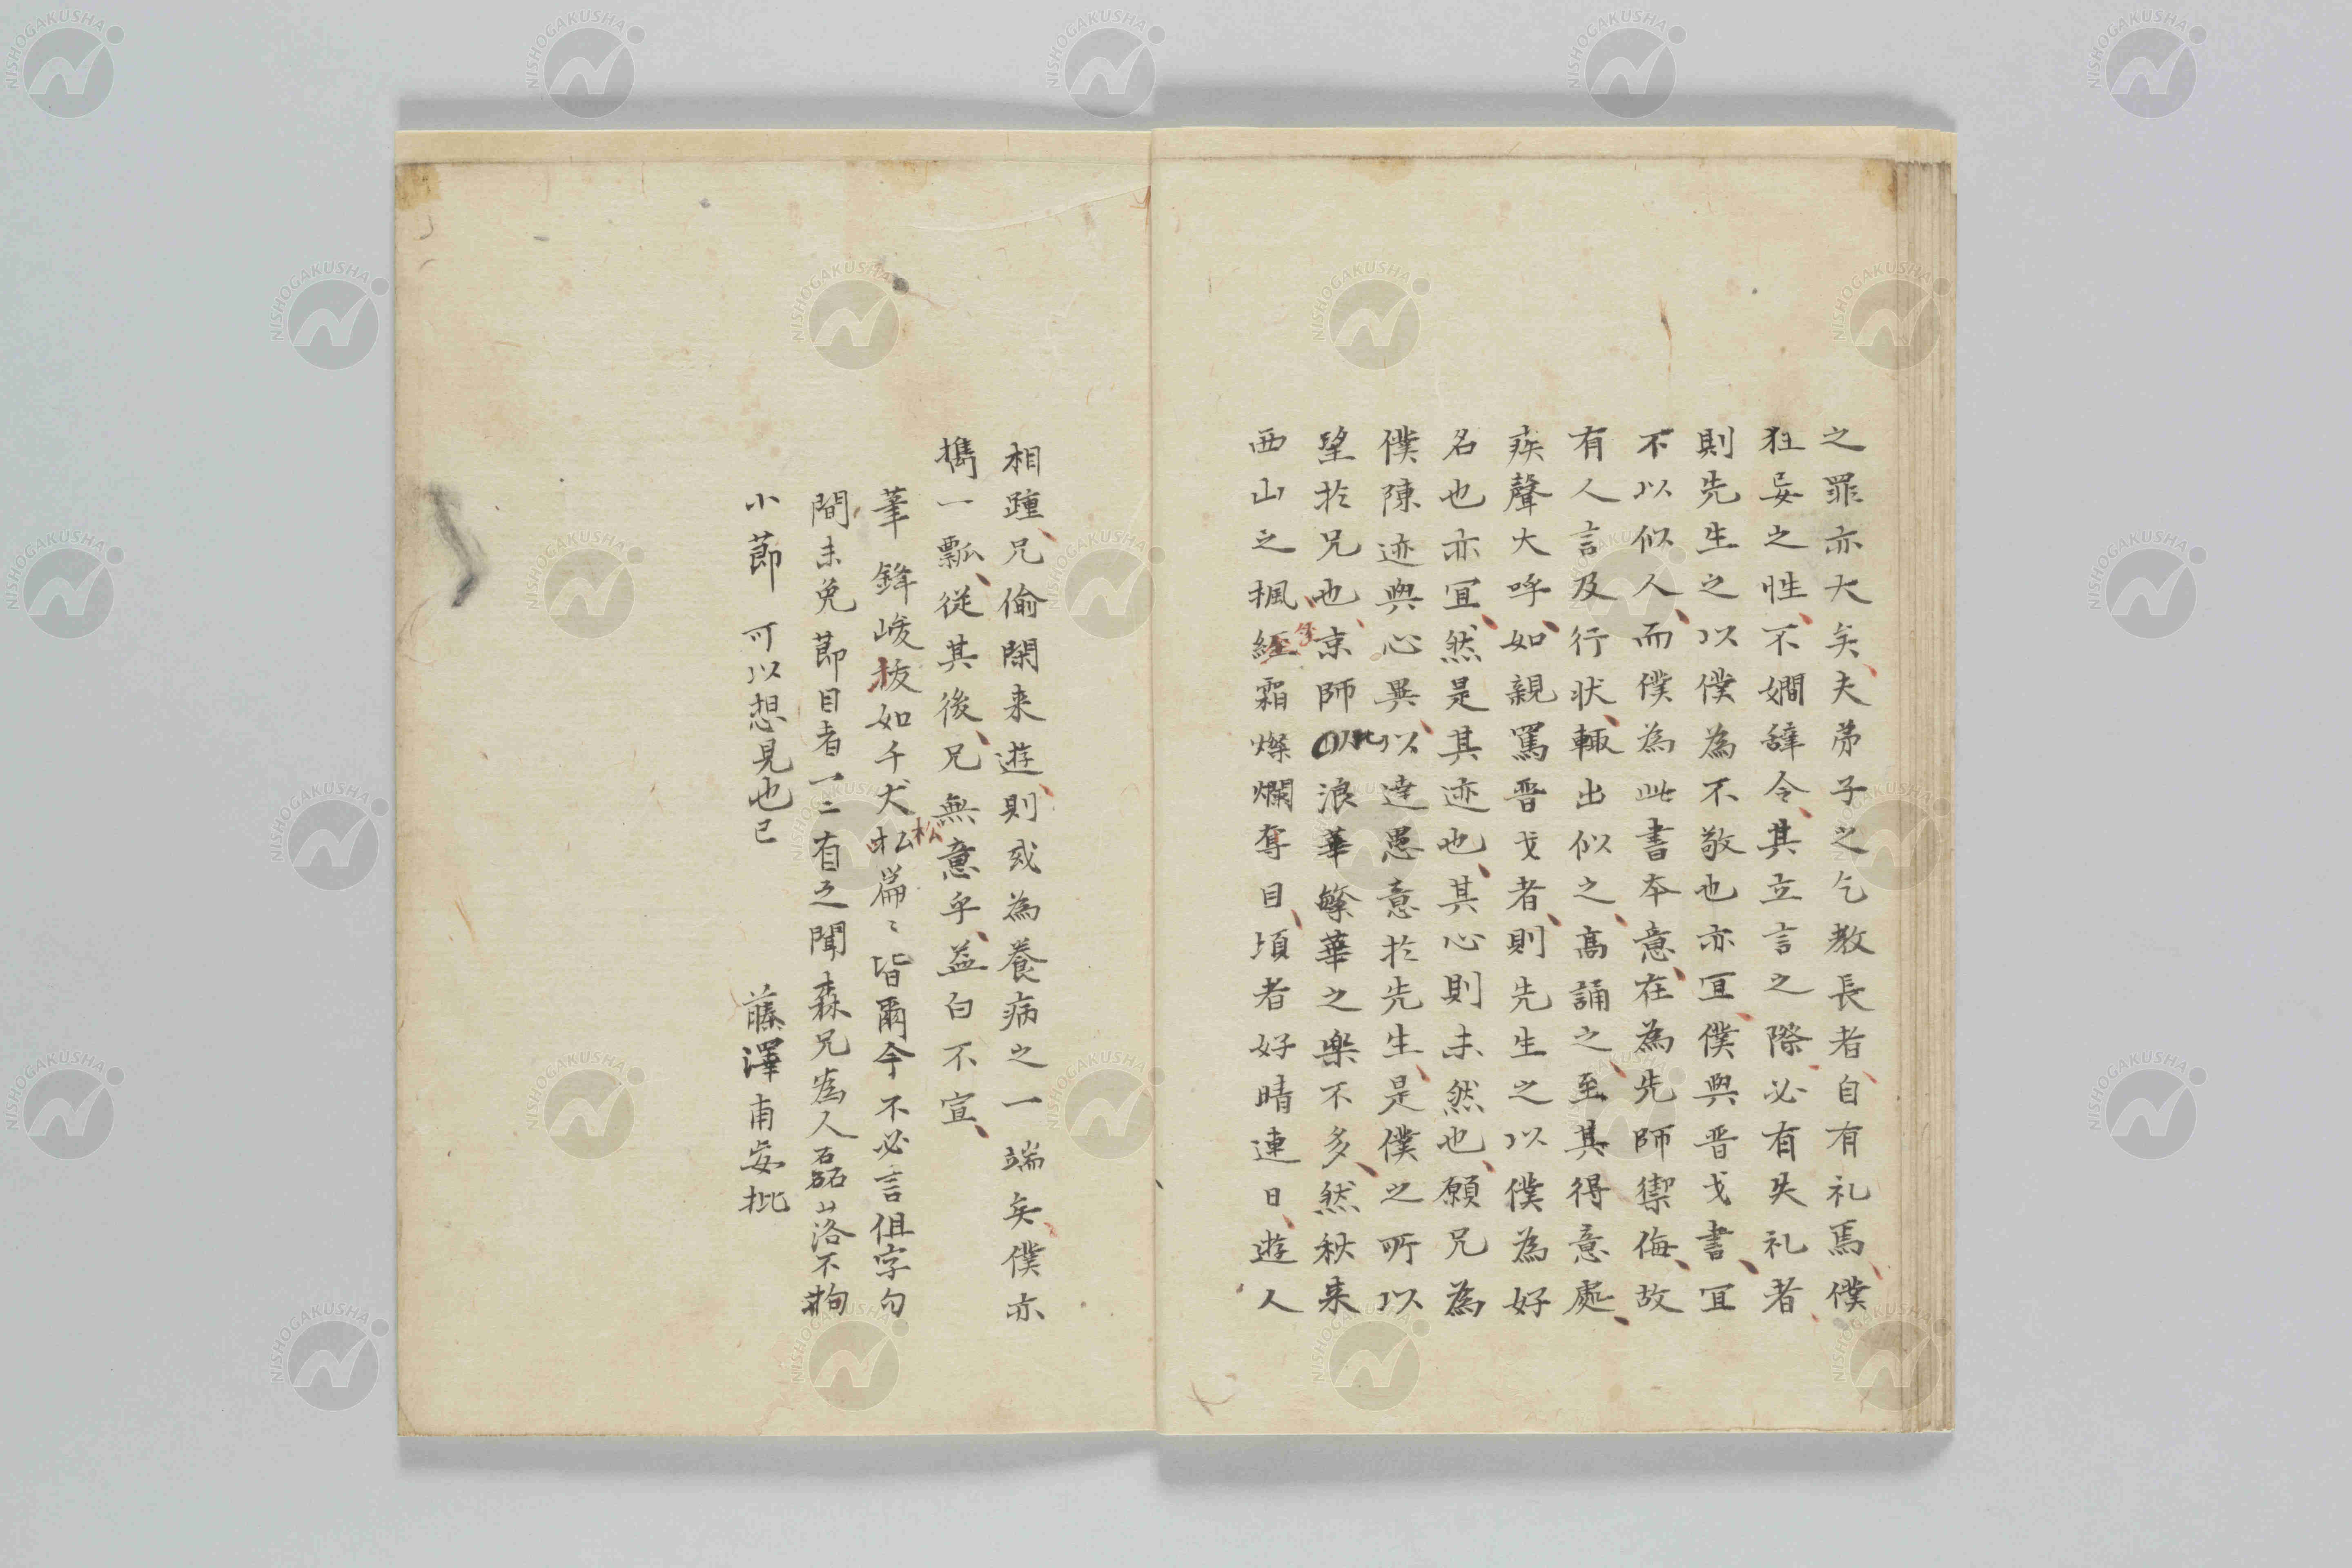 之罪亦大矣夫弟子之乞教長者自有礼焉僕
狂妄之性不嫺辭令其立言之際必有失礼者
則先生之以僕為不敬也亦冝僕與晋戈書冝
不以似人而僕為此書本意在為先師禦侮故
有人言及行状輙出似之高誦之至其得意處
疾聲大呼如親罵晋戈者則先生之以僕為好
名也亦冝然是其迹也其心則未然也願兄為
僕陳迹與心異以達愚意於先生是僕之所以
望於兄也京師比浪華繁華之樂不多然秋来
西山之楓経霜燦爛奪目頃者好晴連日遊人
相踵兄偷閑来遊則或為養病之一端矣僕亦
擕一瓢従其後兄無意乎益白不宣
筆鋒峻抜如千丈松篇〻皆爾今不必言但字句
間未免莭目者一二有之聞森兄為人磊〻落不拘
小莭可以想見也已
藤澤甫妄批
松